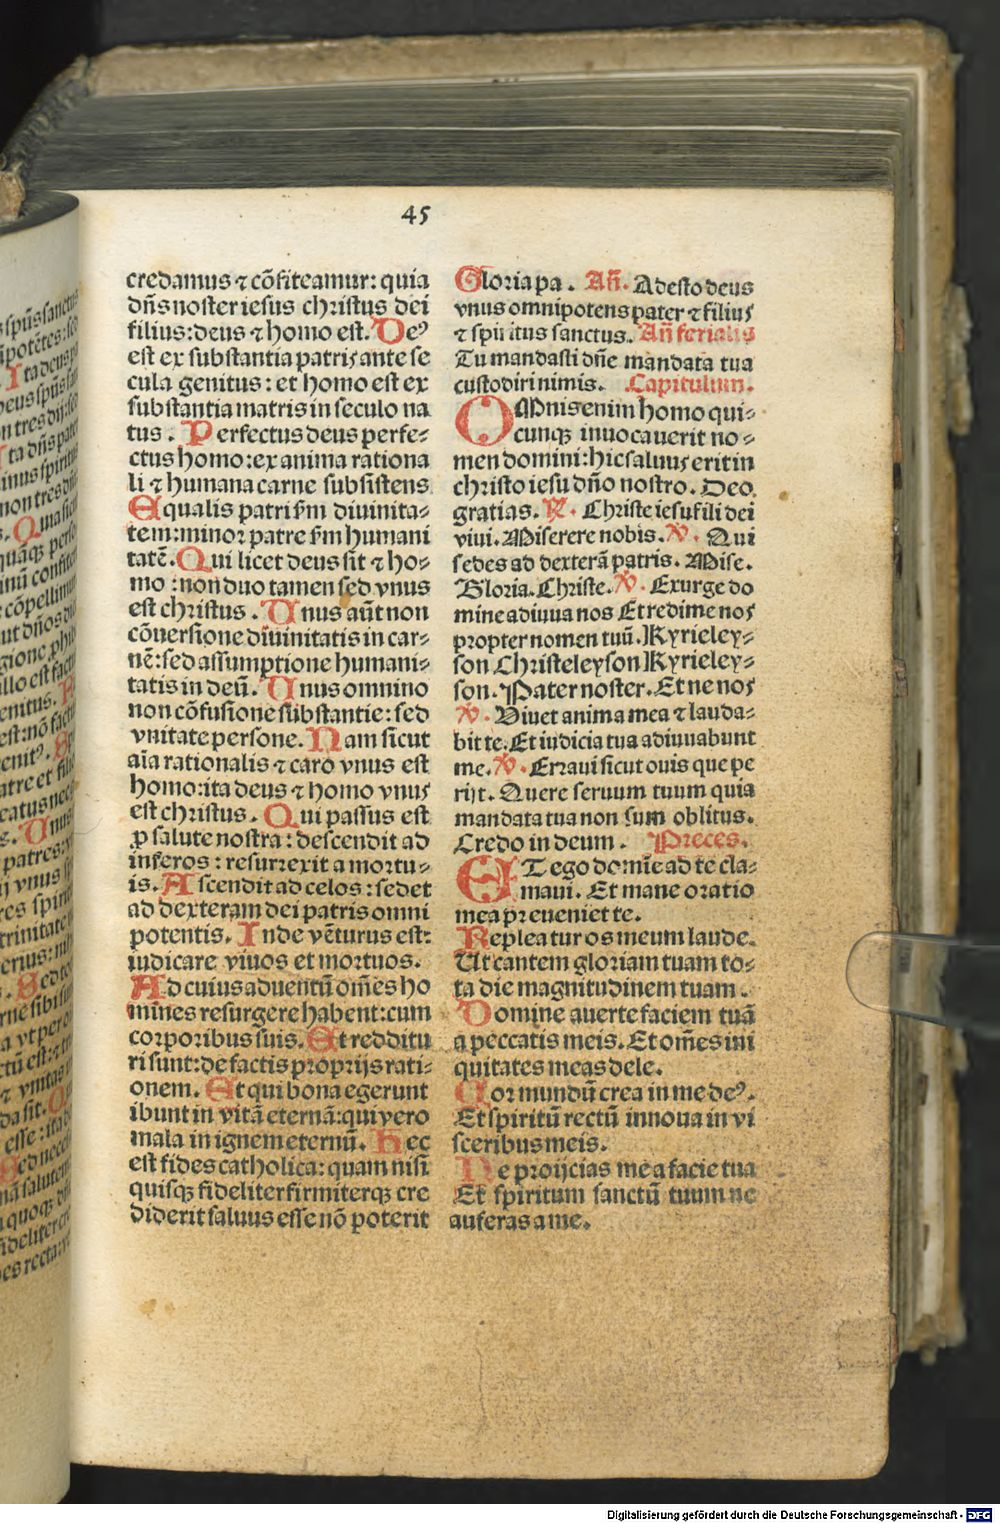 45
credamus ⁊ cõfiteamur: quia
dñs noster iesus christus dei
filius: deus ⁊ homo est. Deꝰ
est ex substantia patris ante se
cula genitus: et homo est ex
substantia matris in seculo na
tus. Perfectus deus perfe⸗
ctus homo: ex anima rationa
li ⁊ humana carne subsistens
Equalis patri ẜm diuinita⸗
tem: minor patre ẜm humani
tatẽ. Qui licet deus sit ⁊ ho⸗
mo: non duo tamen sed vnus
est christus. Unus aũt non
cõuersione diuinitatis in car⸗
nẽ: sed assumptione humani⸗
tatis in deũ. Unus omnino
non cõfusione substantie: sed
vnitate persone. Nam sicut
aĩa rationalis ⁊ caro vnus est
homo: ita deus ⁊ homo vnus
est christus. Qui passus est
ꝓ salute nostra: descendit ad
inferos: resurrexit a mortu⸗
is. Ascendit ad celos: sedet
ad dexteram dei patris omni
potentis. Inde vẽturus est:
iudicare viuos et mortuos.
Ad cuius aduentũ oẽs ho
mines resurgere habent: cum
corporibus suis. Et redditu
ri sunt: de factis proprijs rati⸗
onem. Et qui bona egerunt
ibunt in vitã eternã: qui vero
mala in ignem eternũ. Hec
est fides catholica: quam nisi
quisqꝫ fideliter firmiterqꝫ cre
diderit saluus esse nõ poterit
Gloria pa. Añ. Adesto deus
vnus omnipotens pater ⁊ filius
⁊ spiritus sanctus. Añ ferialis
Tu mandasti dñe mandata tua
custodiri nimis. Capitulum.
OMnis enim homo qui⸗
cunqꝫ inuocauerit no⸗
men domini: hic saluus erit in
christo iesu dño nostro. Deo
gratias. ℟. Christe iesu fili dei
viui. Miserere nobis. ℣. Qui
sedes ad dexterã patris. Mise.
Gloria. Christe. ℣. Exurge do
mine adiuua nos Et redime nos
propter nomen tuũ. Kyrieley⸗
son Christeleyson Kyrieley⸗
son. Pater noster. Et ne nos
℣. Viuet anima mea ⁊ lauda⸗
bit te. Et iudicia tua adiuuabunt
me. ℣. Erraui sicut ouis que pe
rijt. Quere seruum tuum quia
mandata tua non sum oblitus.
Credo in deum. Preces.
ET ego domĩe ad te cla⸗
maui. Et mane oratio
mea preueniet te.
Repleatur os meum laude.
Ut cantem gloriam tuam to⸗
ta die magnitudinem tuam.
Domine auerte faciem tuã
a peccatis meis. Et oẽs ini
quitates meas dele.
Cor mundũ crea in me deꝰ.
Et spiritũ rectũ innoua in vi
sceribus meis.
Ne proijcias me a facie tua
Et spiritum sanctũ tuum ne
auferas a me.
Digitalisierung gefördert durch die Deutsche Forschungsgemeinschaft - DFG